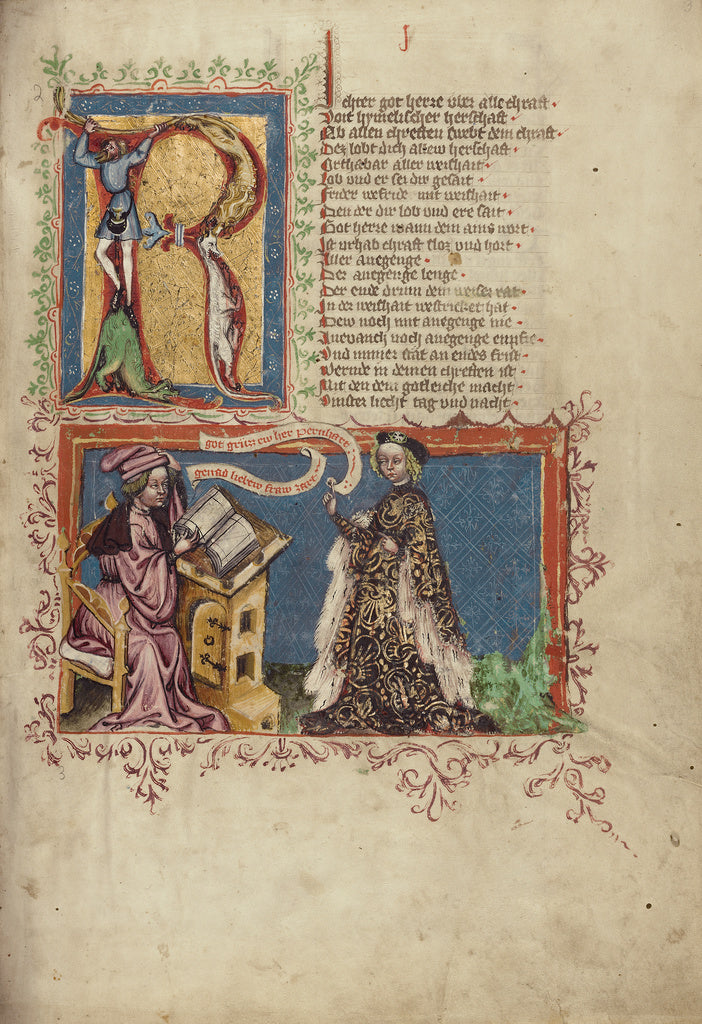 J
Richter got herre vber alle chraft
Voit hymelischer herschaft
Ob allen chreften swebt dein chraft
Dez lobt dich allew herschaft
Orthabær aller weishait
Lob vnd er sei dir gesait
Frider wefride mit weishait
Den der dir lob vnd ere sait
Got herre wann dein ains wort
Ist vrhab chraft sloz vnd hort
Aller anegenge
Der anegenge lenge
Der ende drum dein weiser rat
In der weishait gestricket hat
Dew noch mit anegenge nie
noch anegenge enpfie
Vnd nimer frist an endes frist
Wernde in deinen chreften ist
Mit den dein gotleiche macht
Vinster liecht tag vnd nacht
got gruzz ew her Pernhart
genad liebew fraw zart